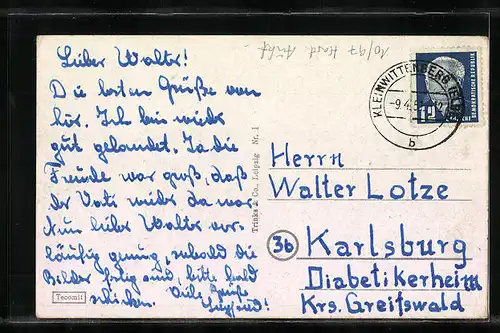 Lieber Walter!
Die besten Grüße von
hier. Ich bin wieder
gut gelandet. Ja die
Freude war groß, daß
der Vati wieder da war
Nun lieber Walter vor-
läufig genug, sobald die
Bilder fertig sind, bitte bald
schicken. Viele Grüße
Siegfried!
Tecomit
Trinks & Co., Leipzig Nr. 1
10/97
KLEINWITTENBERG (ELBE)
-9.4.5
b
DEMOKRATISCHE REPUBLIK
12
Herrn
Walter Lotze
3b
Karlsburg
Diabetikerheim
Krs. Greifswald